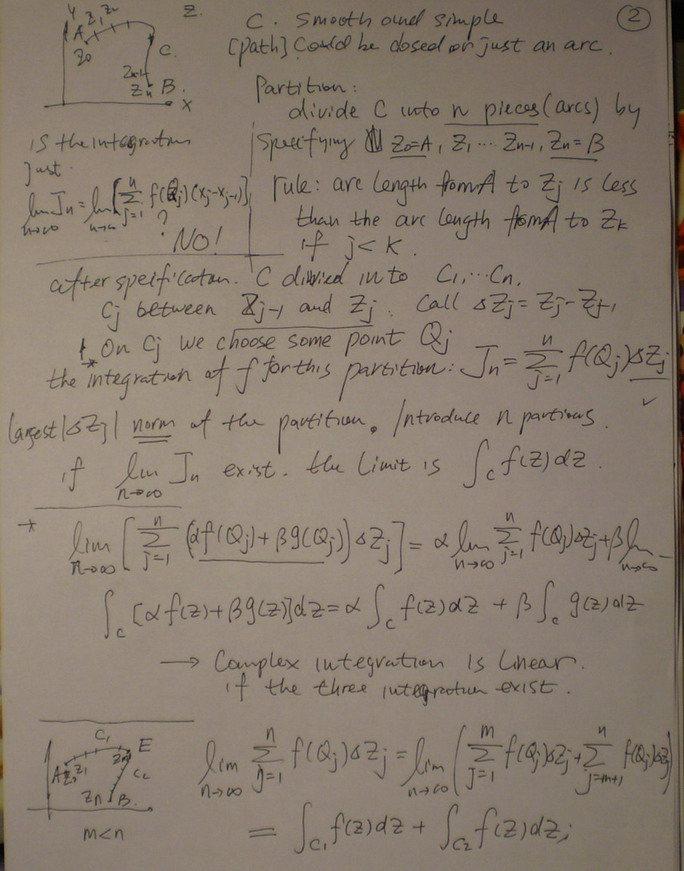 ②
y
z.
A z₁ z₂
z₀
C.
zₙ₋₁
zₙ B.
x
C. Smooth and simple
[path] Could be closed or just an arc.
Partition:
divide C into n pieces (arcs) by
specifying z₀=A, z₁ ... zₙ₋₁, zₙ=B
rule: arc length from A to zⱼ is less
than the arc length from A to zₖ
if j<k.
is the integration
just
lim n→∞ Jₙ = lim n→∞ [∑ j=1 n f(Qⱼ)(xⱼ-xⱼ₋₁)]
?
NO!
after specification. C divided into C₁,...Cₙ.
Cⱼ between zⱼ₋₁ and zⱼ. Call Δzⱼ = zⱼ-zⱼ₋₁
* On Cⱼ we choose some point Qⱼ
the integration of f for this partition: Jₙ = ∑ j=1 n f(Qⱼ)Δzⱼ
✓
largest |Δzⱼ| norm of the partition. Introduce n partions.
if lim n→∞ Jₙ exist. the limit is ∫_C f(z)dz.
* lim n→∞ [∑ j=1 n (αf(Qⱼ)+βg(Qⱼ))Δzⱼ] = α lim n→∞ ∑ j=1 n f(Qⱼ)Δzⱼ+β lim n→∞ ...
∫_C [αf(z)+βg(z)]dz = α ∫_C f(z)dz + β ∫_C g(z)dz
→ Complex integration is linear.
if the three integration exist.
C₁
E
zₘ
A z₀ z₁
C₂
zₙ B.
m<n
lim n→∞ ∑ j=1 n f(Qⱼ)Δzⱼ = lim n→∞ (∑ j=1 m f(Qⱼ)Δzⱼ + ∑ j=m+1 n f(Qⱼ)Δzⱼ)
= ∫_C₁ f(z)dz + ∫_C₂ f(z)dz;